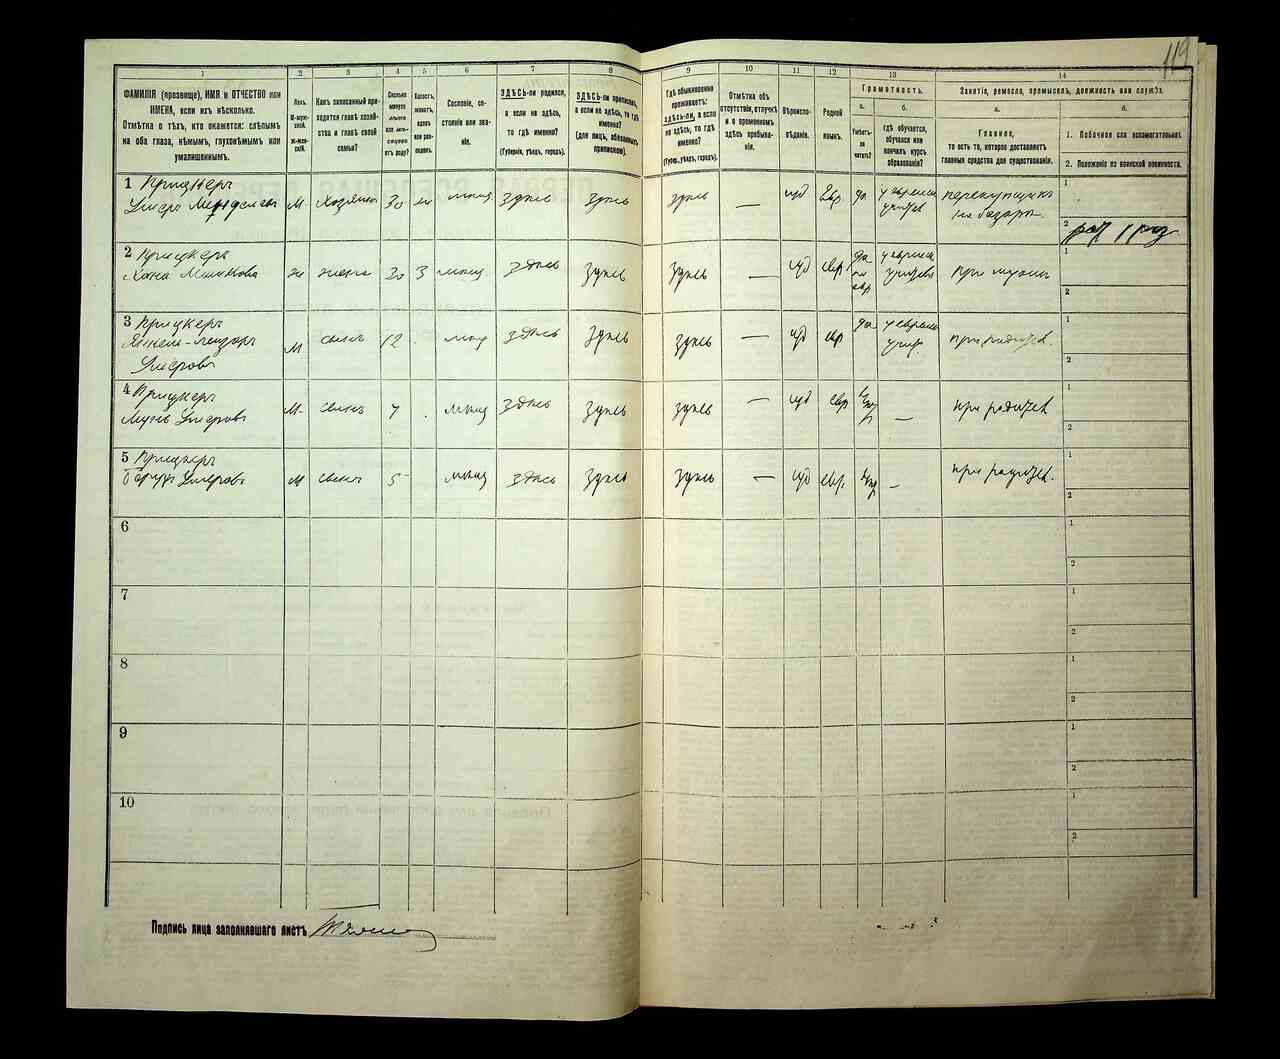 119
1
2
3
4
5
6
7
8
9
10
11
12
13
14
ФАМИЛІЯ (прозвище), ИМЯ и ОТЧЕСТВО или
ИМЕНА, если ихъ нѣсколько.
Отмѣтка о тѣхъ, кто окажется: слѣпымъ
на оба глаза, нѣмымъ, глухонѣмымъ или
умалишеннымъ.
Полъ.
М-мужской.
Ж-женскій.
Какъ записанный при-
ходится главѣ хозяй-
ства и главѣ своей
семьи?
Сколько
минуло
лѣтъ
или мѣся-
цевъ
отъ роду?
Холостъ,
женатъ,
вдовъ
или раз-
веденъ.
Сословіе, со-
стояніе или зва-
ніе.
ЗДѢСЬ-ли родился,
а если не здѣсь,
то гдѣ именно?
(Губернія, уѣздъ, городъ).
ЗДѢСЬ-ли приписанъ,
а если не здѣсь, то гдѣ
именно?
(для лицъ, обязанныхъ
припискою).
Гдѣ обыкновенно
проживаетъ:
здѣсь-ли, а если
не здѣсь, то гдѣ
именно?
(Губерн., уѣздъ, городъ).
Отмѣтка объ
отсутствіи, отлучкѣ
и о временномъ
здѣсь пребыва-
ніи.
Вѣроиспо-
вѣданіе.
Родной
языкъ.
Грамотность.
а.
Умѣетъ-
ли
читать?
б.
гдѣ обучается,
обучался или
кончилъ курсъ
образованія?
Занятіе, ремесло, промыселъ, должность или служба.
а.
Главное,
то есть то, которое доставляетъ
главныя средства для существованія.
б.
1. Побочное или вспомогательное.
2. Положеніе по воинской повинности.
1 Прицкеръ
М Хозяинъ 30 мѣщ здѣсь здѣсь здѣсь — іуд Евр да
перекупщикъ
на базарѣ
1
2
2 Прицкеръ
ж жена 30 з мѣщ здѣсь здѣсь здѣсь — іуд евр
при мужѣ
1
2
3 Прицкеръ
М сынъ 12 мѣщ здѣсь здѣсь здѣсь — іуд евр да
при родител.
1
2
4 Прицкеръ
М сынъ 7 мѣщ здѣсь здѣсь здѣсь — іуд евр —
при родител
1
2
5 Прицкеръ
М сынъ 5 мѣщ здѣсь здѣсь здѣсь — іуд евр. —
при родител.
1
2
6
1
2
7
1
2
8
1
2
9
1
2
10
1
2
Подпись лица заполнявшаго листъ